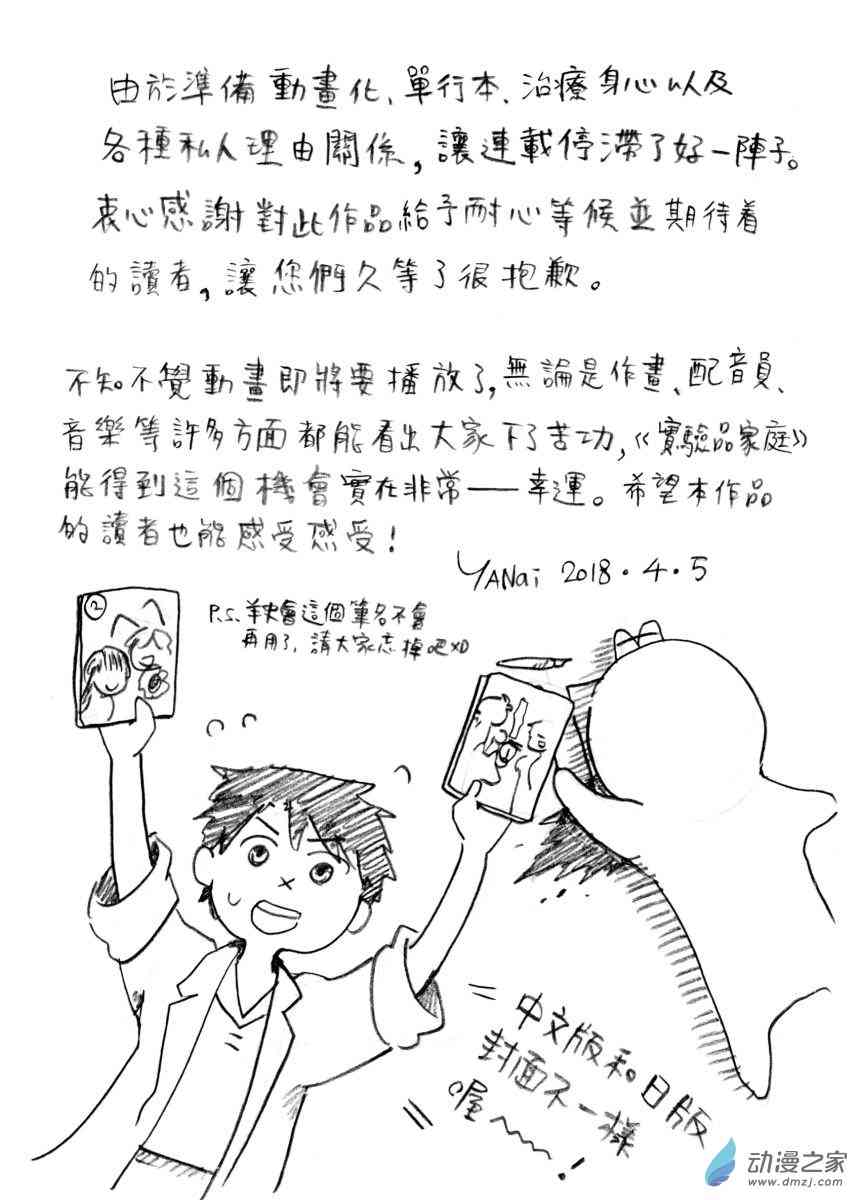 由於準備動畫化、單行本、治療身心以及
各種私人理由關係，讓連載停滯了好一陣子。
衷心感謝對此作品給予耐心等候並期待着
的讀者，讓您們久等了很抱歉。
不知不覺動畫即將要播放了，無論是作畫、配音員、
音樂等許多方面都能看出大家下了苦功，《實驗品家庭》
能得到這個機會實在非常——幸運。希望本作品
的讀者也能感受感受！
YANai 2018.4.5
P.S. 羊史會這個筆名不會
再用了，請大家忘掉吧XD
2
中文版和日版
封面不一樣
喔～！
动漫之家
www.dmzj.com